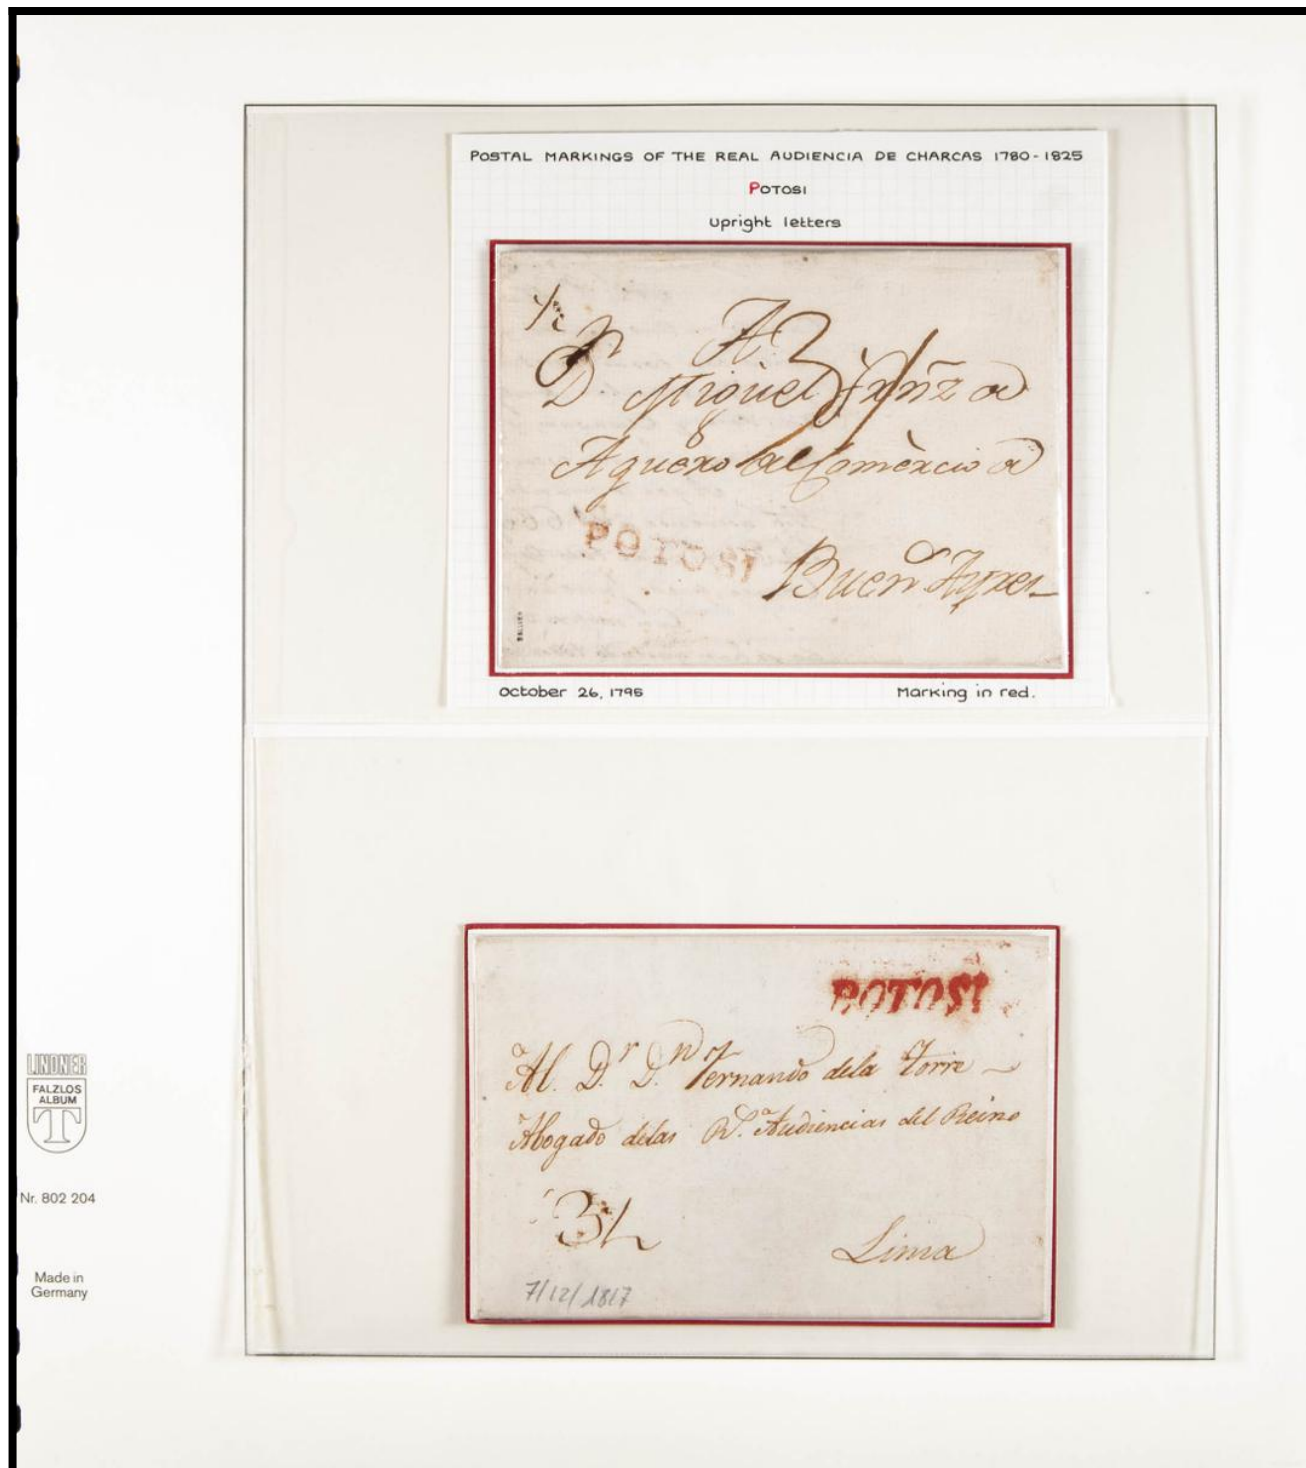 POSTAL MARKINGS OF THE REAL AUDIENCIA DE CHARCAS 1780-1825
POTOSI
Upright letters
A.
D.n Miguel Frñz de
Aguero del Comèrcio de
POTOSI
Buen.s Ayres
October 26, 1795
Marking in red.
POTOSI
Al D.r D.n Fernando dela Torre
Abogado delas R.s Audiencias del Reino
3½
Lima
7/12/1817
LINDNER
FALZLOS
ALBUM
T
Nr. 802 204
Made in
Germany